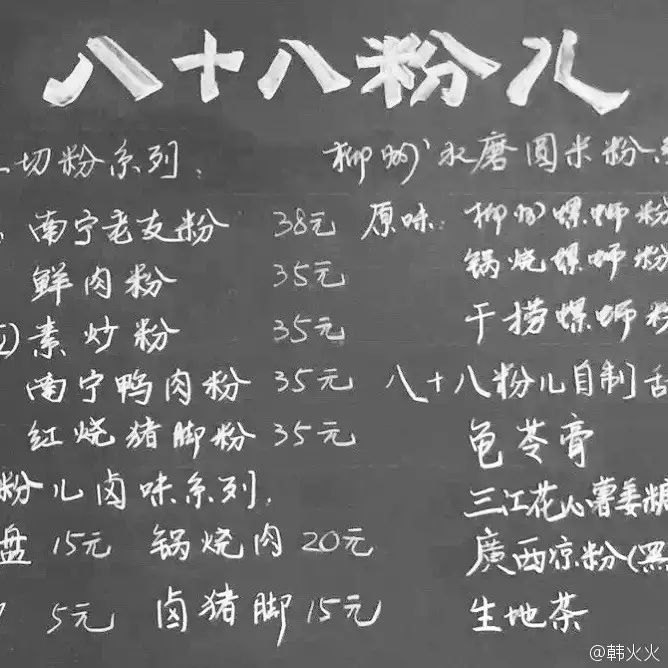 八十八粉儿
切粉系列.
南宁老友粉 38元
鲜肉粉 35元
素炒粉 35元
南宁鸭肉粉 35元
红烧猪脚粉 35元
粉儿卤味系列.
盘 15元 锅烧肉 20元
5元 卤猪脚 15元
柳州水磨圆米粉
原味: 柳州螺蛳粉
锅烧螺蛳粉
干捞螺蛳粉
八十八粉儿自制
龟苓膏
三江花心薯姜糖
廣西凉粉(黑
生地茶
@韩火火